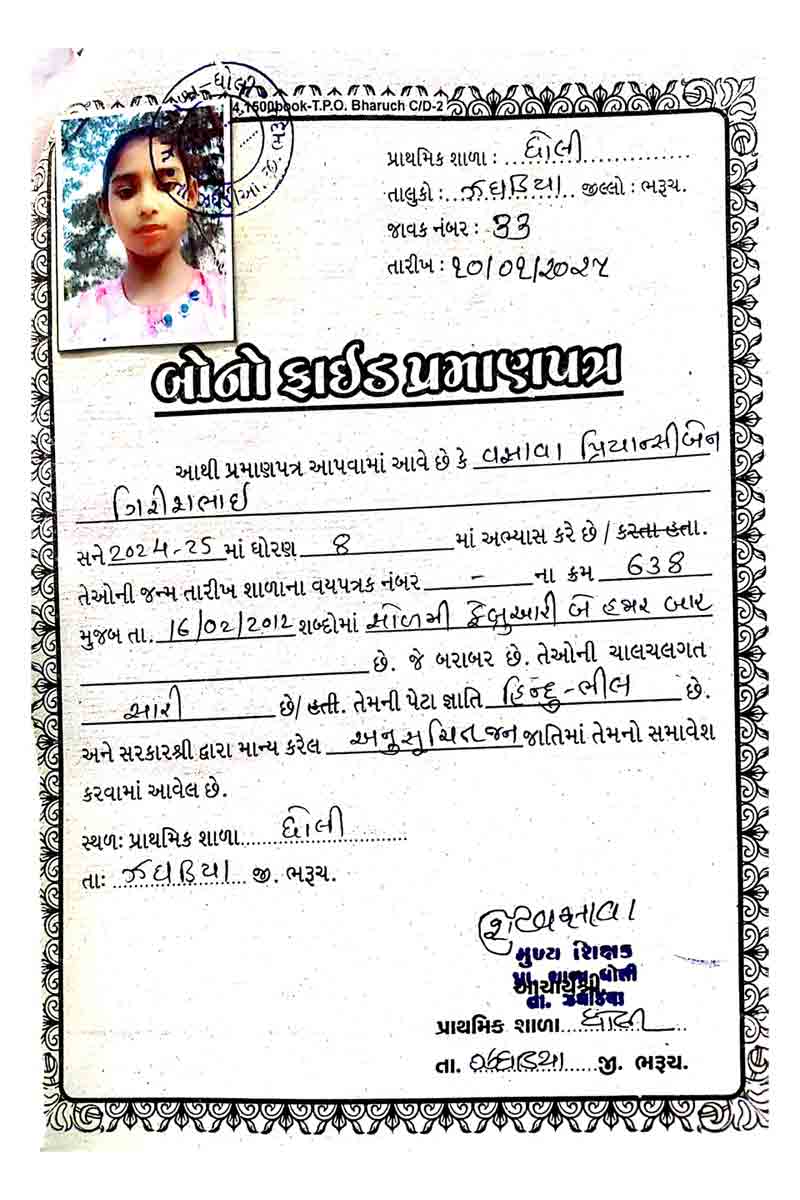 4,1500book-T.P.O. Bharuch C/D-2
પ્રાથમિક શાળા : ધોલી
તાલુકો : ઝઘડિયા જીલ્લો : ભરૂચ.
જાવક નંબર : 33
તારીખ : ૧૦/૦૧/૨૦૨૫
બોનો ફાઈડ પ્રમાણપત્ર
આથી પ્રમાણપત્ર આપવામાં આવે છે કે વસાવા પ્રિયાન્સીબેન
ગિરીશભાઈ
સને 2024-25 માં ધોરણ 8 માં અભ્યાસ કરે છે / કરતા હતા.
તેઓની જન્મ તારીખ શાળાના વયપત્રક નંબર - ના ક્રમ 638
મુજબ તા. 16/02/2012 શબ્દોમાં સોળમી ફેબ્રુઆરી બે હજાર બાર
છે. જે બરાબર છે. તેઓની ચાલચલગત
સારી છે/ હતી. તેમની પેટા જ્ઞાતિ હિન્દુ-ભીલ છે.
અને સરકારશ્રી દ્વારા માન્ય કરેલ અનુસૂચિત જન જાતિમાં તેમનો સમાવેશ
કરવામાં આવેલ છે.
સ્થળ: પ્રાથમિક શાળા ધોલી
તા: ઝઘડિયા જી. ભરૂચ.
મુખ્ય શિક્ષક
પ્રા. શાળા ધોલી
આચાર્યશ્રી
તા. ઝઘડિયા
પ્રાથમિક શાળા ધોલી
તા. ઝઘડિયા જી. ભરૂચ.